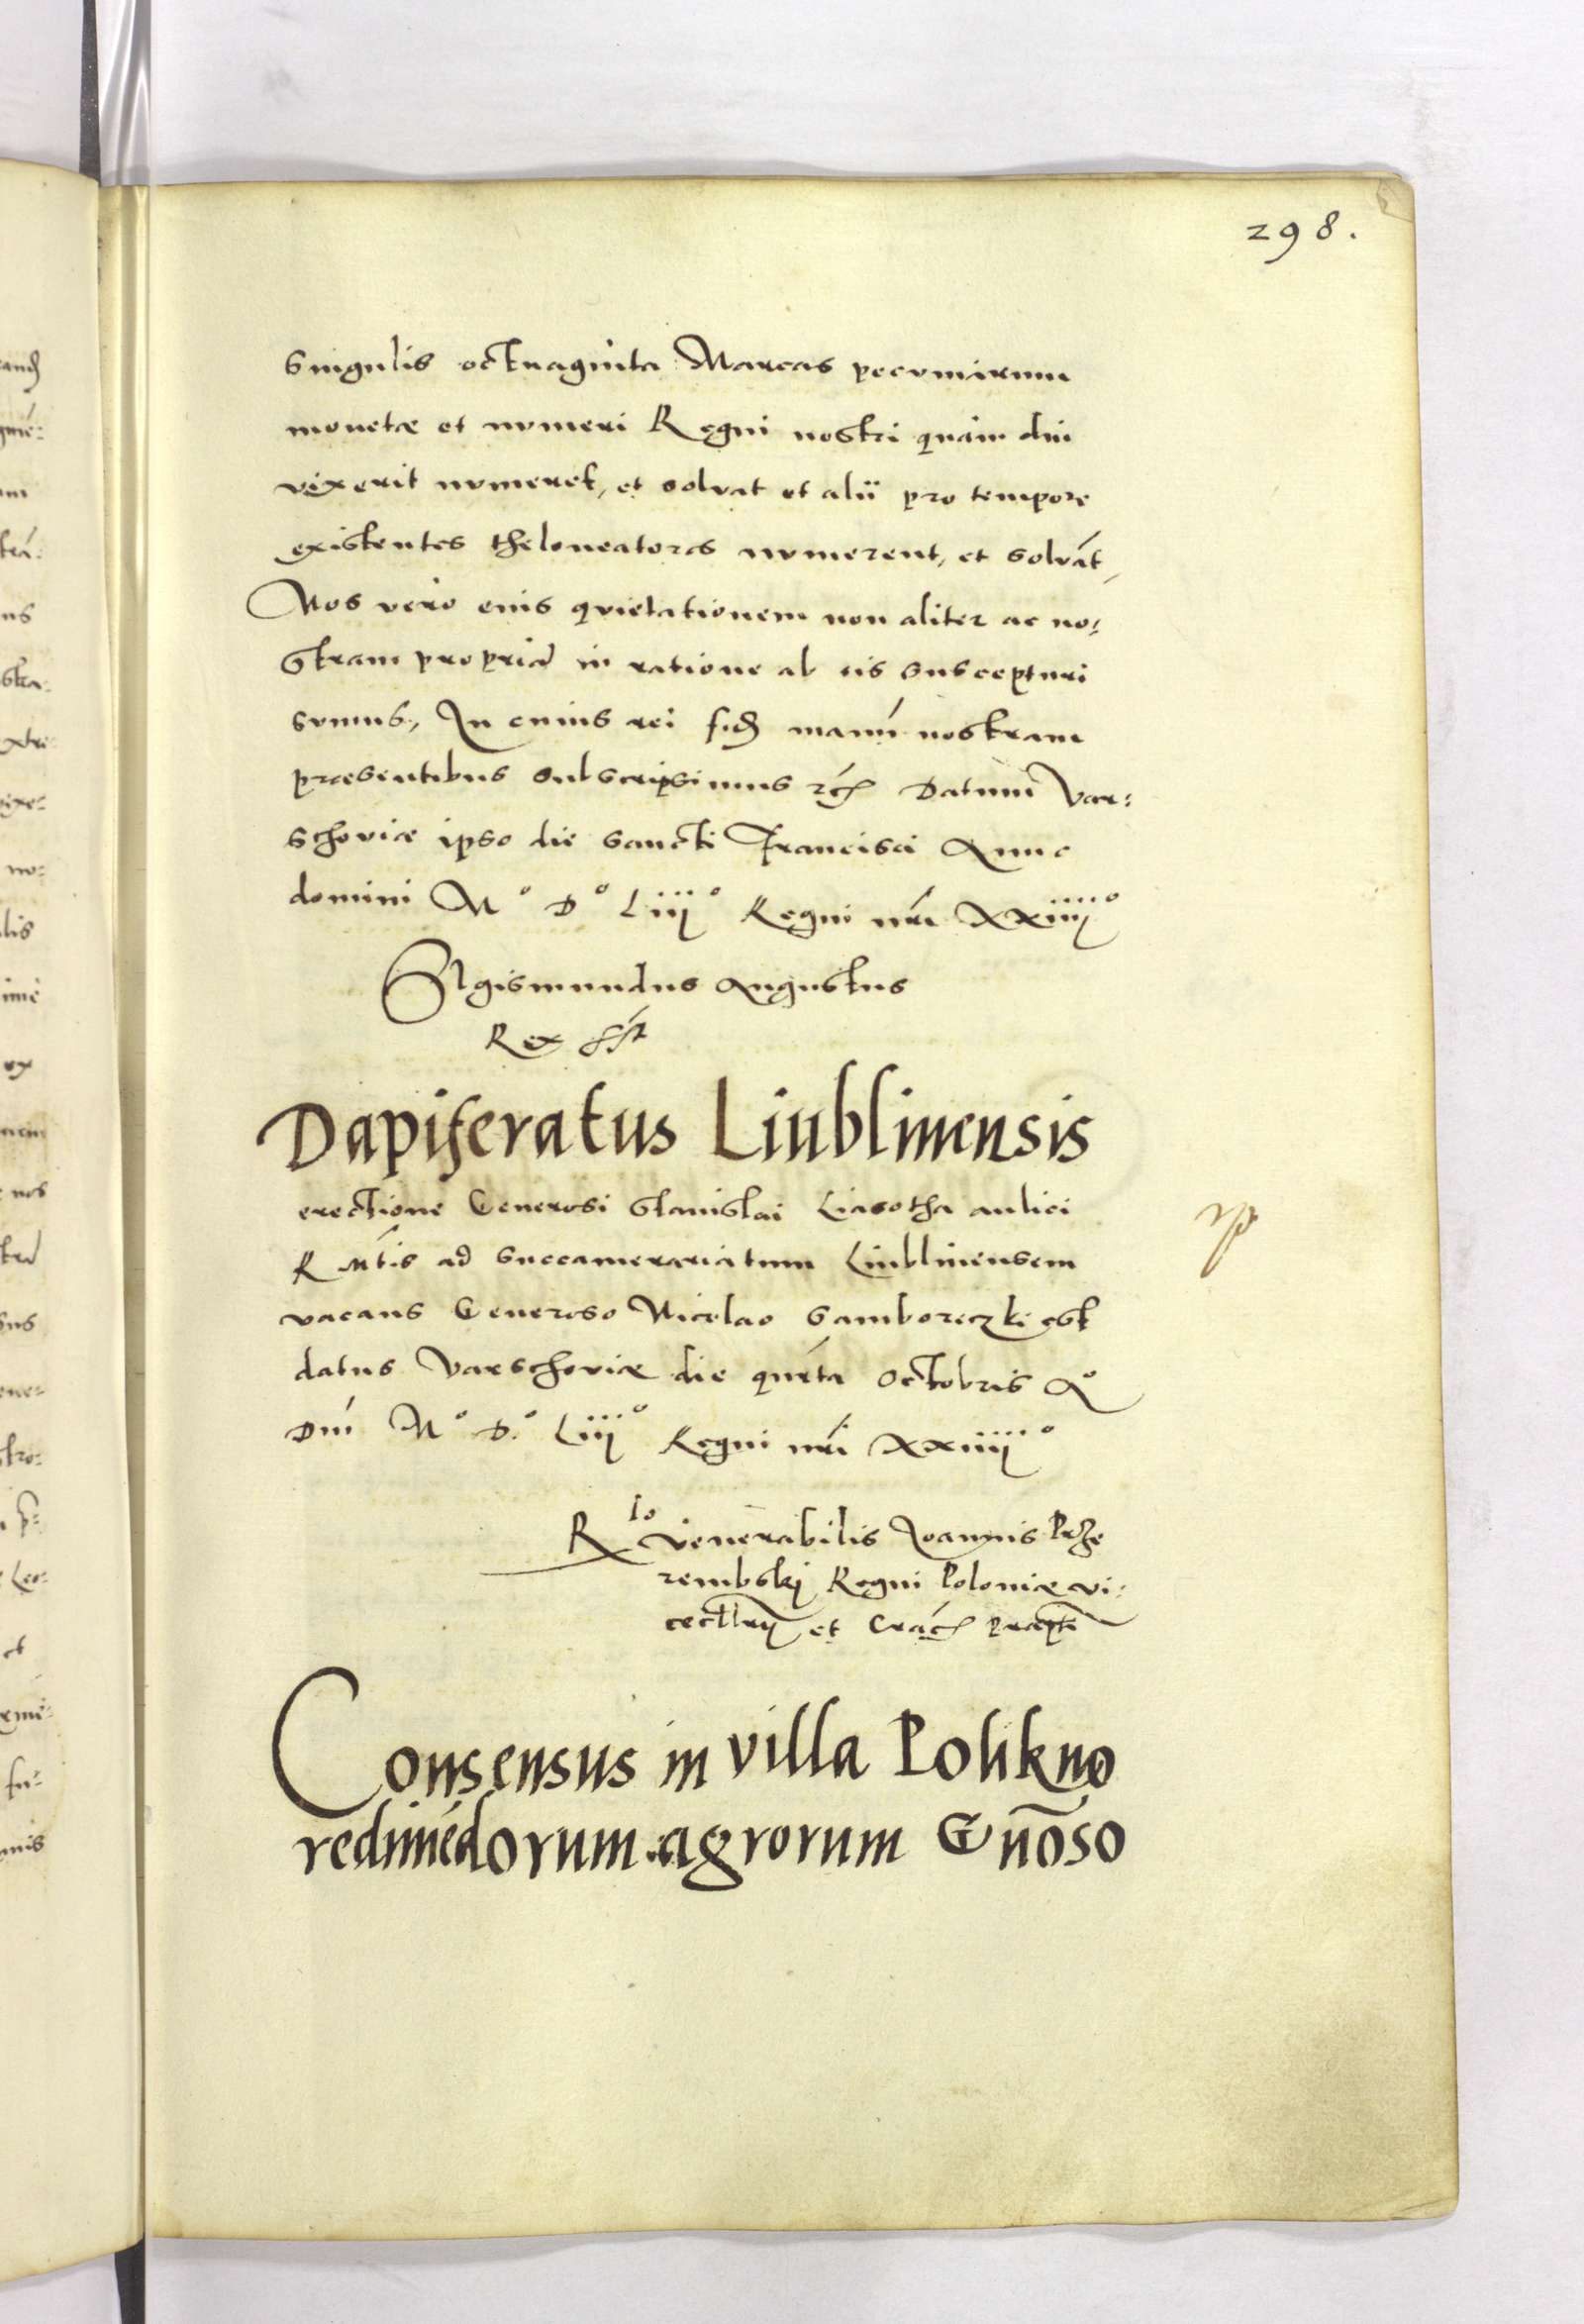 298.
singulis octuaginta Marcas pecuniarum
monetæ et numeri Regni nostri quam diu
vixerit numeret, et solvat et alii pro tempore
existentes theloneatores numerent, et solvát,
Nos vero eius quietationem non aliter ac no:
stram propriã in ratione ab eis suscepturi
sumus, In cuius rei fid manũ nostram
præsentibus subscripsimus Datum Var:
schoviæ ipso die sancti Francisci Anno
domini M° D° Liii° Regni nri XXiiii°
Sigismundus Augustus
Rex sst
Dapiferatus Liublinensis
erectione Generosi Stanislai Liasotha aulici
R Mtis ad succamerariatum Liublinensem
vacans Generoso Nicolao Samboreczki est
datus Varschoviæ die quinta Octobris A°
Dni M° D.° Liii° Regni nri XXiiii°
R lo Venerabilis Joannis Prze
rembskj Regni Poloniæ vi:
cecllrij et Crac præpti
Consensus in villa Polikno
redimẽdorum agrorum Gnõso